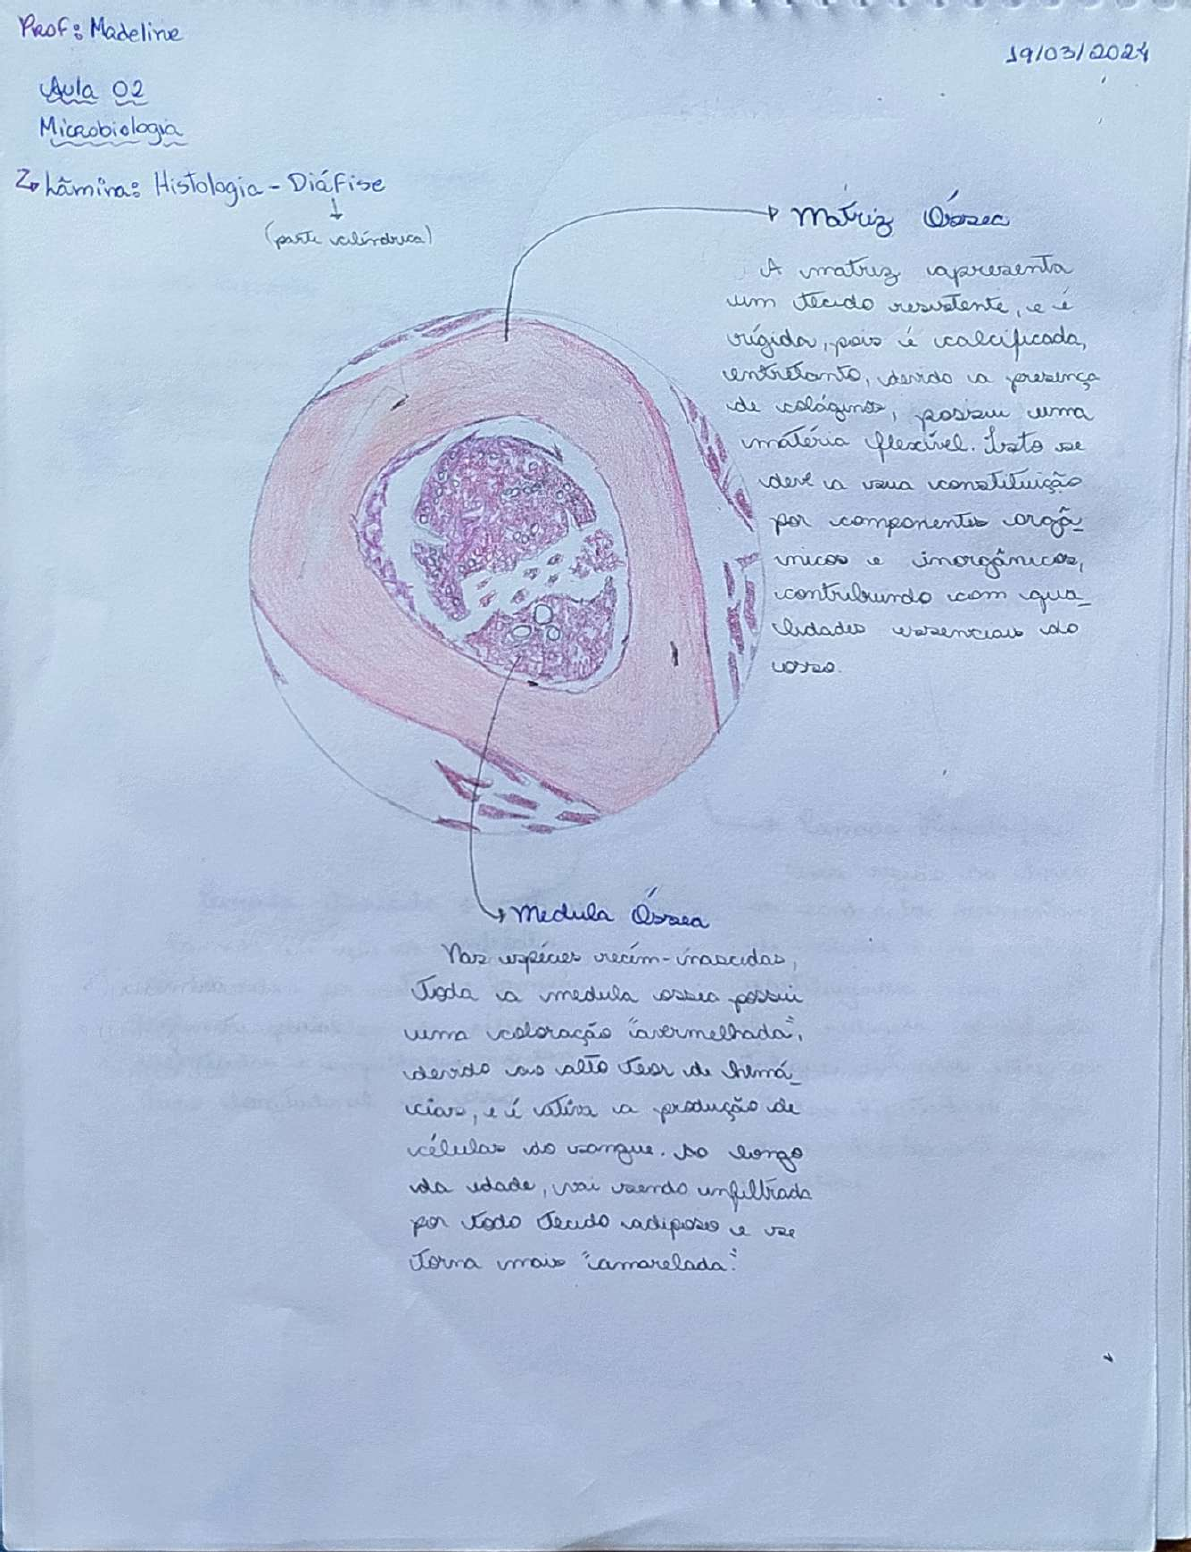 Prof: Madeline
19/03/2024
Aula 02
Microbiologia
Lâmina: Histologia - Diáfise
(parte cilíndrica)
Matriz Óssea
A matriz apresenta
um tecido resistente, e é
rígida, pois é calcificada,
entretanto, devido a presença
de colágenos, possui uma
matéria flexível. Isto se
deve a sua constituição
por componentes orgâ-
nicos e inorgânicos,
contribuindo com qua-
lidades essenciais do
osso.
Medula Óssea
Nas espécies recém-nascidas,
toda a medula ossea possui
uma coloração "avermelhada",
devido ao alto teor de hemá-
cias, e é ativa a produção de
células do sangue. Ao longo
da idade, vai sendo infiltrada
por todo tecido adiposo e se
torna mais "amarelada".